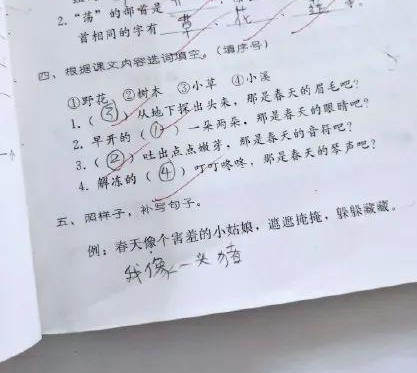 2. "荡"的部首是
首相同的字有 草、花、
四、根据课文内容选词填空。(填序号)
①野花 ②树木 ③小草 ④小溪
1. (③) 从地下探出头来, 那是春天的眉毛吧?
2. 早开的 (①) 一朵两朵, 那是春天的眼睛吧?
3. (②) 吐出点点嫩芽, 那是春天的音符吧?
4. 解冻的 (④) 叮叮咚咚, 那是春天的琴声吧?
五、照样子, 补写句子。
例: 春天像个害羞的小姑娘, 遮遮掩掩, 躲躲藏藏。
我像一头猪